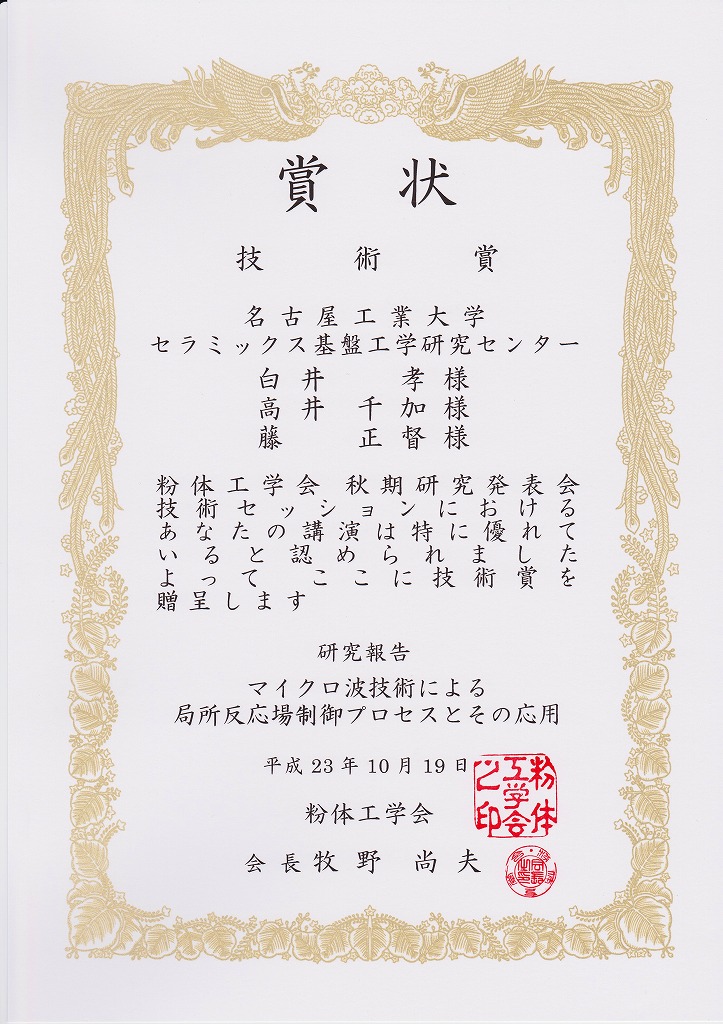 賞状
技術賞
名古屋工業大学
セラミックス基盤工学研究センター
白井 孝様
高井 千加様
藤 正督様
粉体工学会 秋期研究発表会
技術セッションにおける
あなたの講演は特に優れて
いると認められました
よって ここに技術賞を
贈呈します
研究報告
マイクロ波技術による
局所反応場制御プロセスとその応用
平成23年10月19日
粉体工学会
会長牧野 尚夫
粉体
工学会
之印